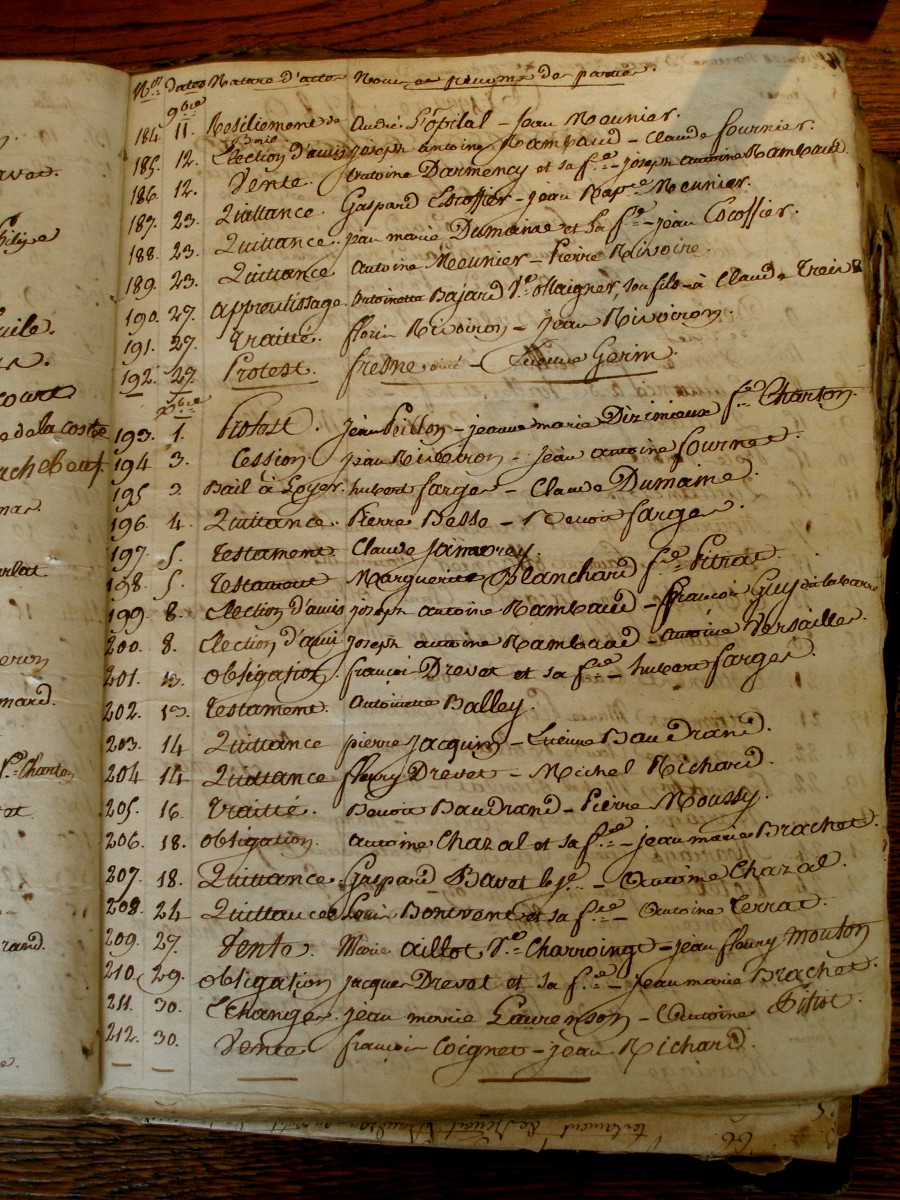 Nos dates Nature d'actes Noms et prenoms des parties.
9bre
184 11. Resiliement de André L'ôpital - Jean Meunier.
185. 12. Election d'amis joseph antoine Rambaud - Claude fournier.
186. 12. Vente. Antoine Darmency et sa fe. - joseph antoine Rambaud.
187. 23. Quittance. Gaspard Escoffier - jean Bapte Meunier.
188. 23. Quittance. jean marie Dumaine et sa fe - jean Escoffier.
189. 23. Quittance Antoine Meunier - Pierre Rivoire.
190. 27. apprentissage. Antoinette Bajard Ve Maignet, son fils - à Claude
191. 27. traitté. fleury Rivoiron - Jean Rivoiron.
192. 27. Protest. fresne - Etienne Gerin.
Xbre
193. 1. Protest. jean Peillon - jeanne marie Dizimieux fe Charton.
194 3. Cession. jean Rivoiron - jean antoine fournet.
195 3. Bail à Loyer. hubert farge - Claude Dumaine.
196. 4. Quittance. Pierre Besse - Benoit farge.
197. 5. testament. Claude Jamerey.
198. 5. testament Marguerite Blanchard fe Pitrat.
199. 8. Election d'amis joseph antoine Rambaud - françois Guy de la
200. 8. Election d'ami Joseph antoine Rambaud - Antoine Versailles.
201. 13. obligation. françois Drevet et sa fe - hubert farge.
202. 13. testament. Antoinette Balley.
203. 14 Quittance pierre jacquin - Etienne Baudrand.
204 14 Quittance fleury Drevet - Michel Richard.
205. 16. traitté. Benoit Baudrand - Pierre Moussy.
206. 18. obligation. antoine Chazal et sa fe - jean marie Brachet.
207. 18. Quittance. Gaspard Bavet le je. - Antoine Chazal.
208. 24 Quittance Louis Bonvent et sa fe - Antoine terrat.
209. 27. Vente. Marie aillot Ve Charroingt - jean fleury Mouton
210. 29. obligation jacques Drevet et sa fe - jean marie Brachet.
211. 30. Echange. jean marie Laurenson - Antoine Pitiot.
212. 30. Vente françois Coignet - jean Richard.